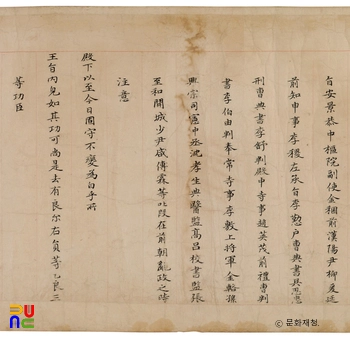 旨安景恭中樞院副使金稇前漢陽尹柳爰廷
前知申事李稷左承旨李懃戶曹典書吳思忠
刑曹典書李舒判殿中寺事趙英茂前禮曹判
書李伯由判奉常寺事李敷上將軍金輅孫
興宗司憲中丞沈孝生典醫監高呂校書監張
至和開城少尹咸傅霖等叱段在前朝亂政之時
注意
殿下以至今日固守不變爲白乎所
王旨內皃如其功可尙是去有良尒右員等乙良三
等功臣
문화재청